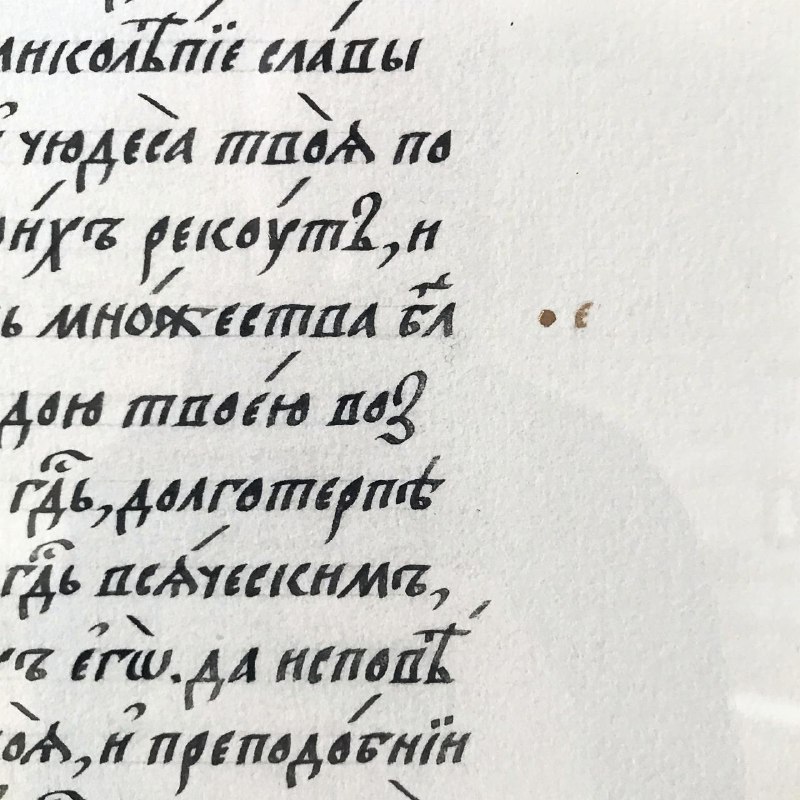 ликолѣ́пїе сла́вы
чюдеса̀ твоѧ̀ по
ны́хъ рекоу́тъ, и
ь мно́жества бл҃
дою твое́ю воз
гдⷭ҇ь, долготерпѣ
гдⷭ҇ь всѧ́ческимъ,
ъ є҆гѡ̀. да исповѣ́
оѧ̀, и҆ преподо́бнїи
• є